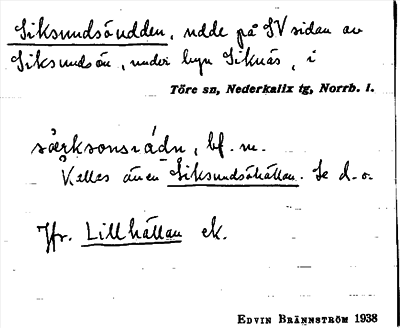 Siksundsöudden, udde på SV sidan av
Siksundsön, under byn Siknäs, i
Töre sn, Nederkalix tg, Norrb. l.
bf. m.
Kallas även Siksundsöhällan. Se d. o.
Jfr. Lillhällan ek.
EDVIN BRÄNNSTRÖM 1938